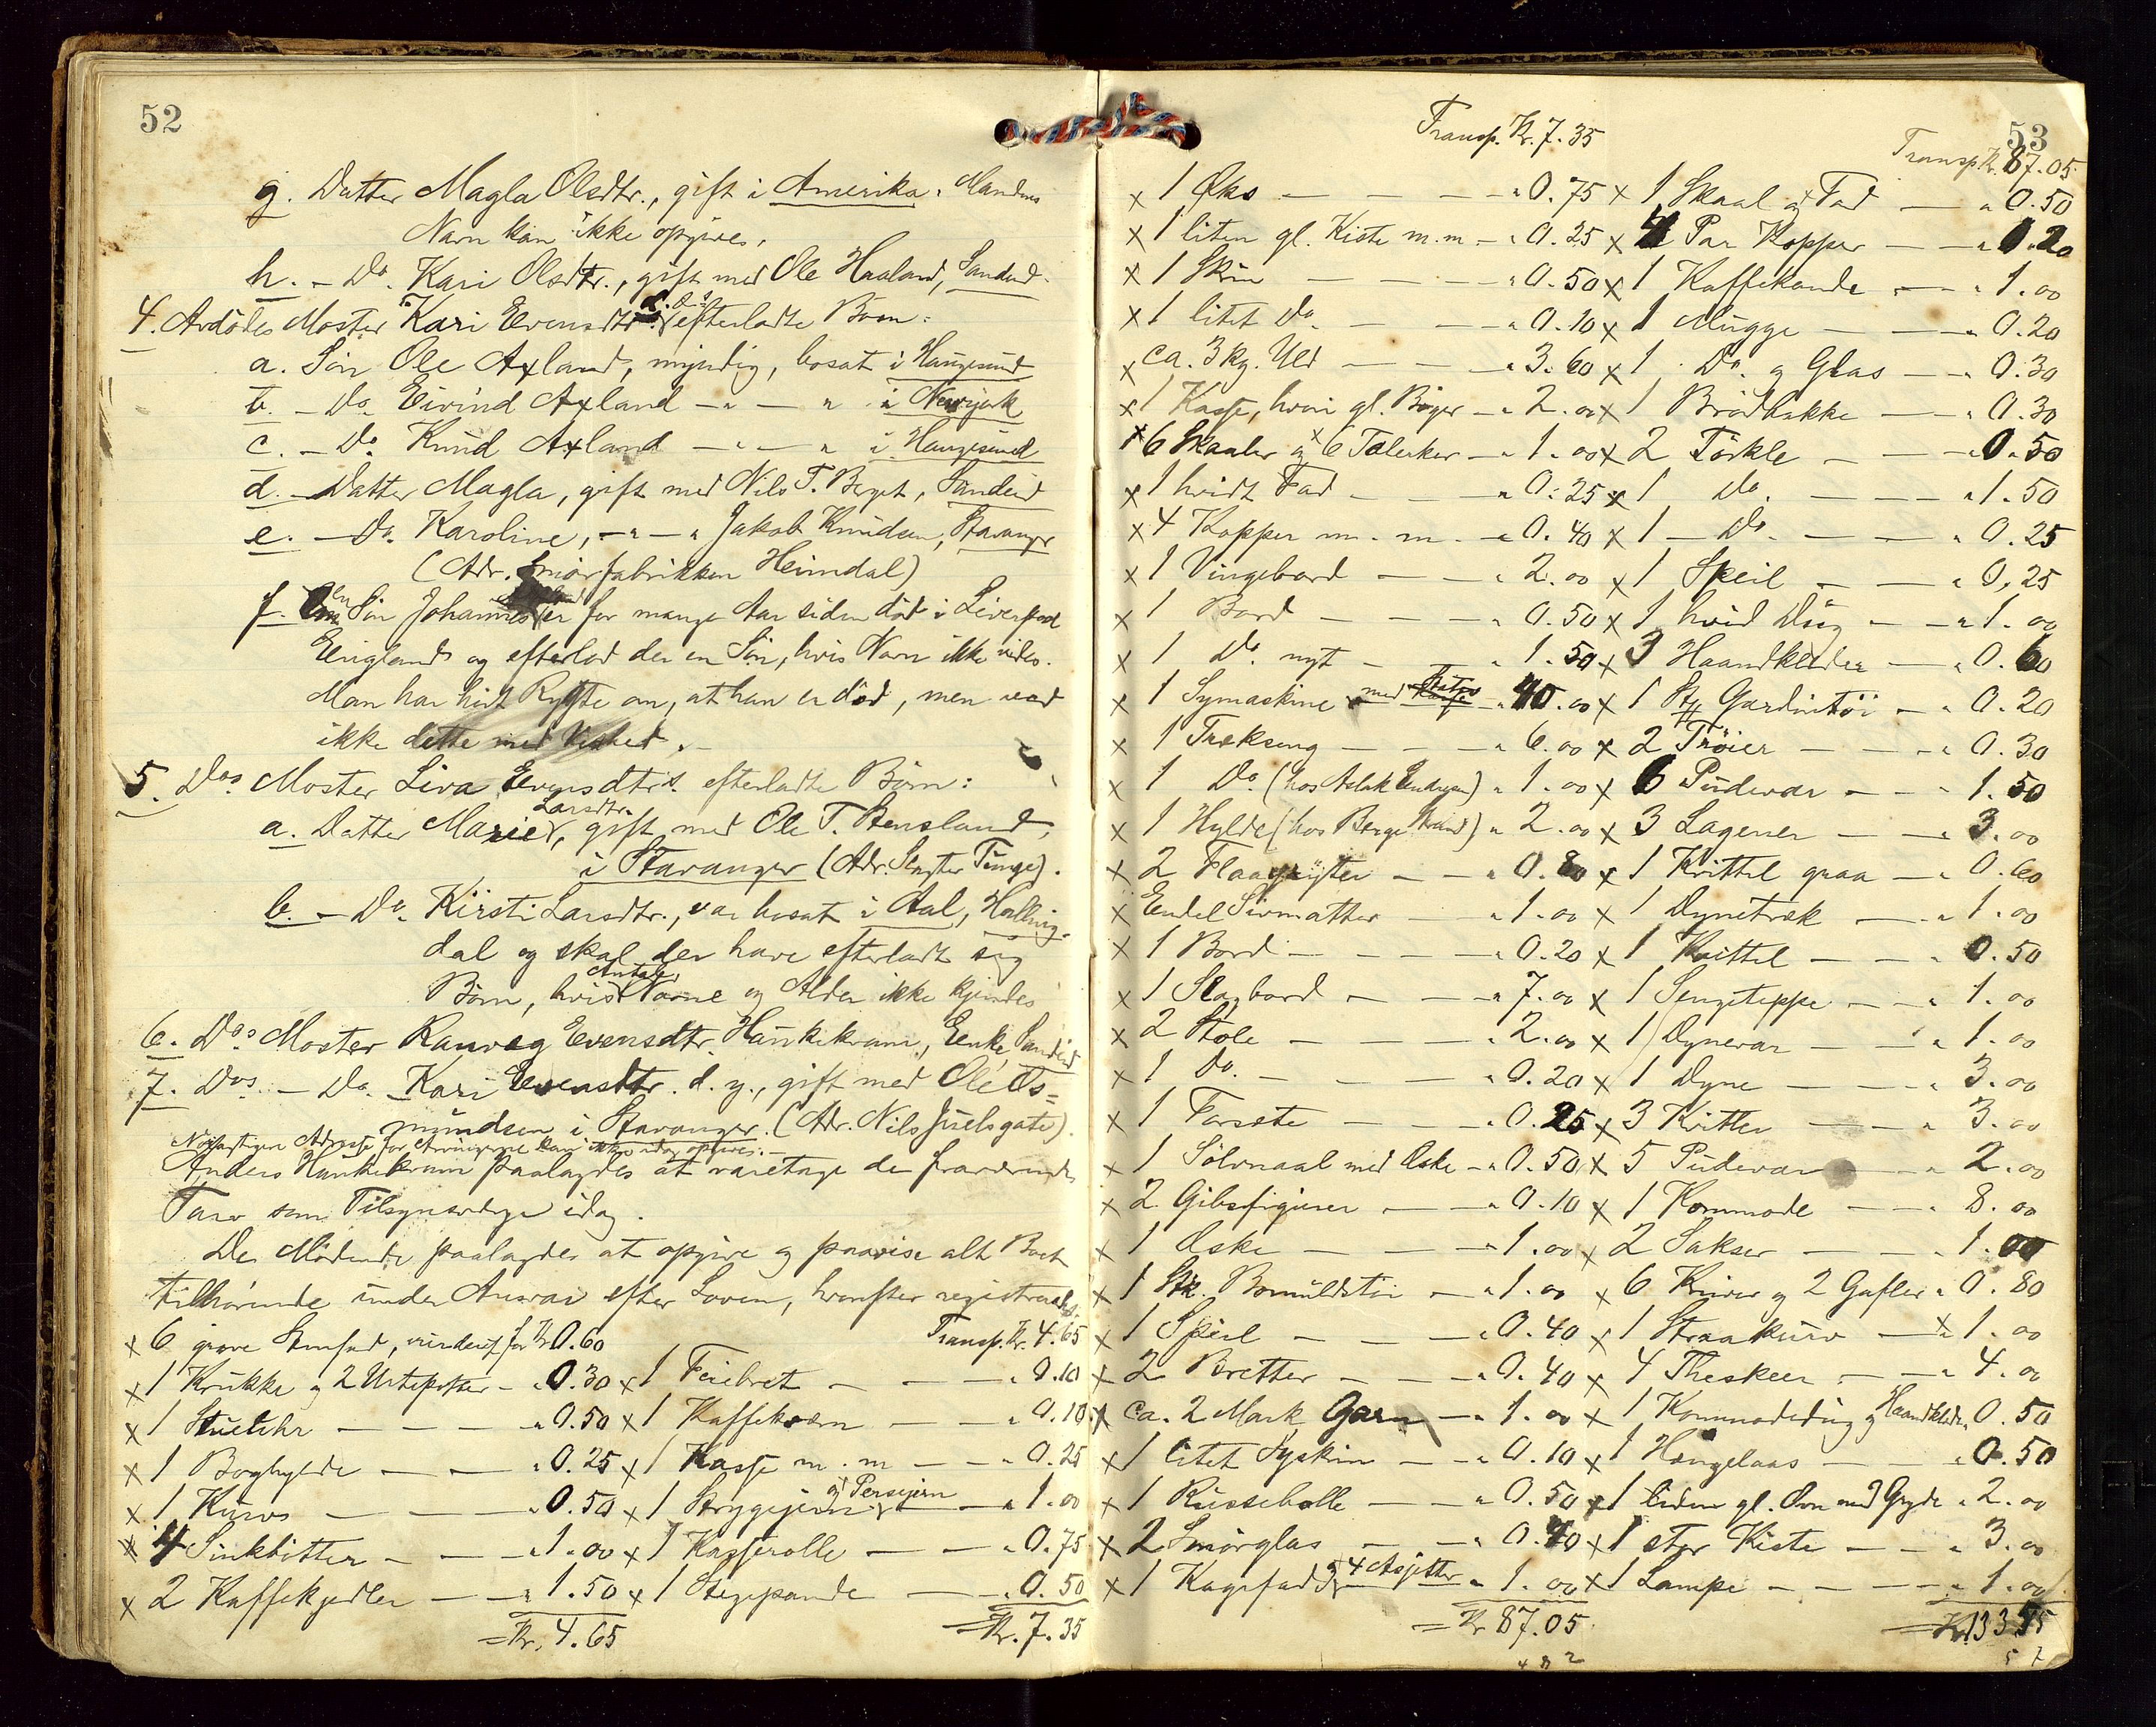 52
g. Datter Magla Olsdtr., gift i Amerika. Mandens
Navn kan ikke opgives.
h. - Do. Kari Olsdtr., gift med Ole Haaland, Sandeid.
4. Avdødes Moster Kari Evensdtr. d. æ.s efterladte Børn:
a. Søn Ole Axland, myndig, bosat i Haugesund
b. - Do. Eivind Axland - " - " i Newyork
c. - Do. Knud Axland - " - " i Haugesund
d. - Datter Magla, gift med Nils T. Berget, Sandeid
e. - Do. Karoline, - " - " Jakob Knudsen, Stavanger
(Adr. Smørfabrikken Heimdal)
f. En Søn Johannes er for mange Aar siden død i Liverpool
England og efterlod der en Søn, hvis Navn ikke vides.
Man har hørt Rygte om, at han er død, men ved
ikke dette med Vished. -
5. Dos Moster Liva Evensdtrs. efterladte Børn:
a. Datter Marie Larsdtr., gift med Ole T. Stensland,
i Stavanger (Adr. Slagter Tunge).
b. - Do. Kirsti Larsdtr., var bosat i Aal, Halling-
dal og skal der have efterladt sig
Børn, hvis Antal, Navne og Alder ikke kjendes
6. Dos Moster Ranveg Evensdtr. Haukekram, Enke, Sandeid
7. Dos - Do. Kari Evensdtr. d. y., gift med Ole Os=
mundsen i Stavanger. (Adr. Nils Juelsgate).
Nøiagtigere Adresse for Arvingerne kan ikke idag opgives. -
Anders Haukekram paalagdes at varetage de fraværendes
Tarv som Tilsynsværge idag.
De Mødende paalagdes at opgive og paavise alt Boet
tilhørende under Ansvar efter Loven, hvorefter registreredes:
x 6 grove Stenfad, vurderet for Kr. 0.60
x 1 Krukke og 2 Urtepotter - " 0.30
x 1 Stueuhr - - - " 0.50
x 1 Boghylde - - " 0.25
x 1 Kurv - - - " 0.50
x 4 Sinkbøtter - - " 1.00
x 2 Kaffekjedler - - " 1.50
= Kr. 4.65
Transp. Kr. 4.65
x 1 Feiebret - - - " 0.10
x 1 Kaffekværn - - " 0.10
x 1 Kasse m. m - - " 0.25
x 1 Strygejern og Persejern - " 1.00
x 1 Kasserolle - - " 0.75
x 1 Stegepande - " 0.50
= Kr. 7.35
53
Transp. Kr. 7.35
x 1 Øks - - - " 0.75
x 1 liten gl. Kiste m.m - " 0.25
x 1 Skrin - - - " 0.50
x 1 litet Do. - - " 0.10
x ca. 3 kg. Uld - - " 3.60
x 1 Kasse, hvori gl. Bøger - " 2.00
x 6 Skaaler og x 6 Talerker - " 1.00
x 1 hvidt Fad - - - " 0.25
x 4 Kopper m. m. - " 0.40
x 1 Vingebord - - " 2.00
x 1 Bord - - - " 0.50
x 1 Do. nyt - - " 1.50
x 1 Symaskine med - " 40.00
x 1 Trækseng - - - " 6.00
x 1 Do. (hos Aslak Endresen) " 1.00
x 1 Hylde (hos Berge Strand) " 2.00
x 2 Flaagryter - - " 0.80
x Endel Sivmatter - " 1.00
x 1 Bord - - - - " 0.20
x 1 Slagbord - - " 7.00
x 2 Stole - - - " 2.00
x 1 Do. - - - " 0.20
x 1 Forsæte - - " 0.25
x 1 Sølvnaal med Æske - " 0.50
x 2 Gibsfigurer - - " 0.10
x 1 Æske - - - " 1.00
x 1 Stk. Bomuldstøi - " 1.00
x 1 Speil - - - " 0.40
x 2 Bretter - - - " 0.40
x ca. 2 Mark Garn - " 1.00
x 1 litet Syskrin - - " 0.10
x 1 Kussebolle - - " 0.50
x 2 Smørglas - - " 0.40
x 1 Kagefad og 4 Asjetter - " 1.00
= Kr 87.05
Transp. Kr. 87.05
x 1 Skaal og x Fad - " 0.50
x 4 Par Kopper - - " 0.20
x 1 Kaffekande - - " 1.00
x 1 Mugge - - " 0.20
x 1 Do. og Glas - " 0.30
x 1 Brødbakke - " 0.30
x 2 Tørkle - - " 0.50
x 1 Do. - - - " 1.50
x 1 - Do. - - " 0.25
x 1 Speil - - " 0,25
x 1 hvid Dug - - " 1.00
x 3 Haandklæder - " 0.60
x 1 St. Gardintøi - " 0.20
x 2 Trøier - - - " 0.30
x 6 Pudevar - - " 1.50
x 3 Lagener - - " 3.00
x 1 Kvittel graa - " 0.60
x 1 Dynetræk - " 1.00
x 1 Kvittel - - " 0.50
x 1 Sengeteppe - " 1.00
x 1 Dynevar - - " 1.00
x 1 Dyne - - - " 3.00
x 3 Kvitler - - " 3.00
x 5 Pudevar - " 2.00
x 1 Kommode - - " 8.00
x 2 Sakser - - " 1.00
x 6 Knive og 2 Gafler " 0.80
x 1 Straakurv - x " 1.00
x 4 Theskeer - - " 4.00
x 1 Kommodedug og Haandklæde " 0.50
x 1 Hængelaas - - " 0.50
x 1 liden gl. Ovn med Gryde " 2.00
x 1 stor Kiste - - " 3.00
x 1 Lampe - - - " 1.00